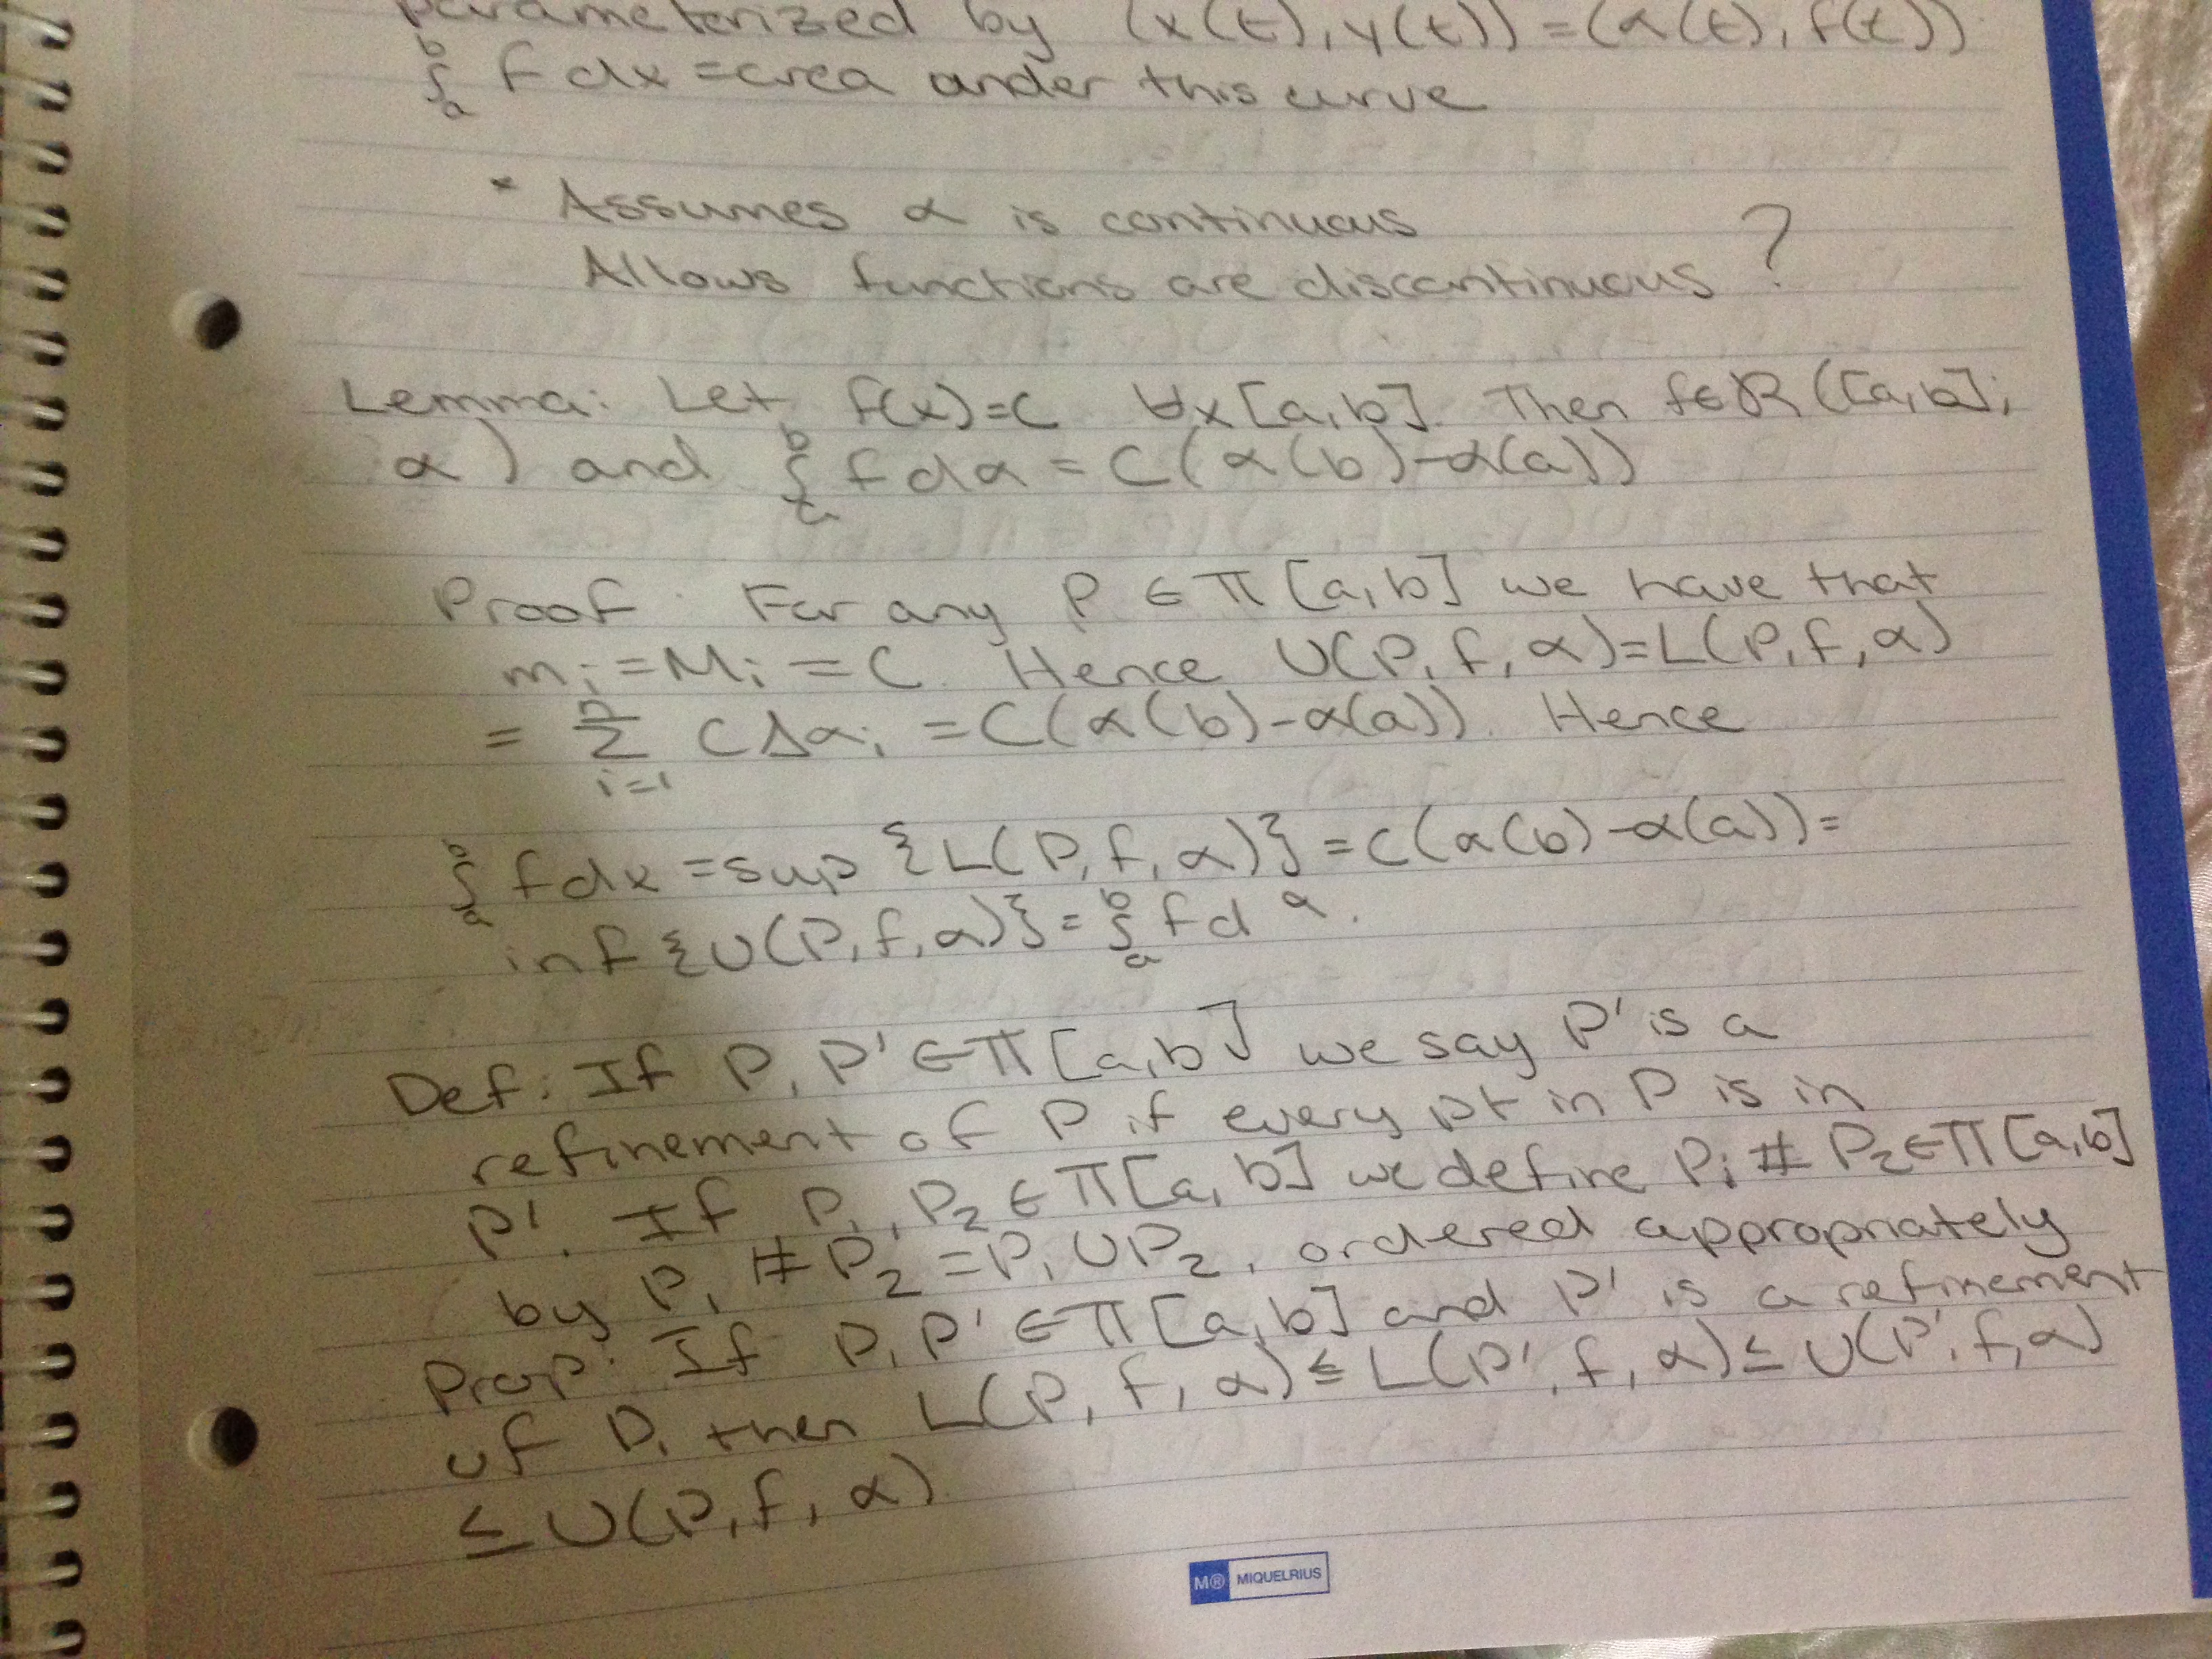 parameterized by (x(t), y(t)) = (α(t), f(t))
∫_a^b f dx = area under this curve
* Assumes α is continuous
Allows functions are discontinuous ?
Lemma: Let f(x)=C ∀x[a,b]. Then f∈R([a,b];
α) and ∫_a^b f dα = C(α(b)-α(a))
Proof: For any P ∈ Π[a,b] we have that
m_i = M_i = C. Hence U(P,f,α)=L(P,f,α)
= Σ_{i=1}^n CΔα_i = C(α(b)-α(a)). Hence
∫_a^b f dx = sup {L(P,f,α)} = C(α(b)-α(a)) =
inf {U(P,f,α)} = ∫_a^b f d α.
Def: If P, P' ∈ Π[a,b] we say P' is a
refinement of P if every pt in P is in
P'. If P_1, P_2 ∈ Π[a,b] we define P_1 # P_2 ∈ Π[a,b]
by P_1 # P_2 = P_1 ∪ P_2, ordered appropriately
Prop: If P, P' ∈ Π[a,b] and P' is a refinement
of P, then L(P,f,α) ≤ L(P',f,α) ≤ U(P',f,α)
≤ U(P,f,α)
M® MIQUELRIUS